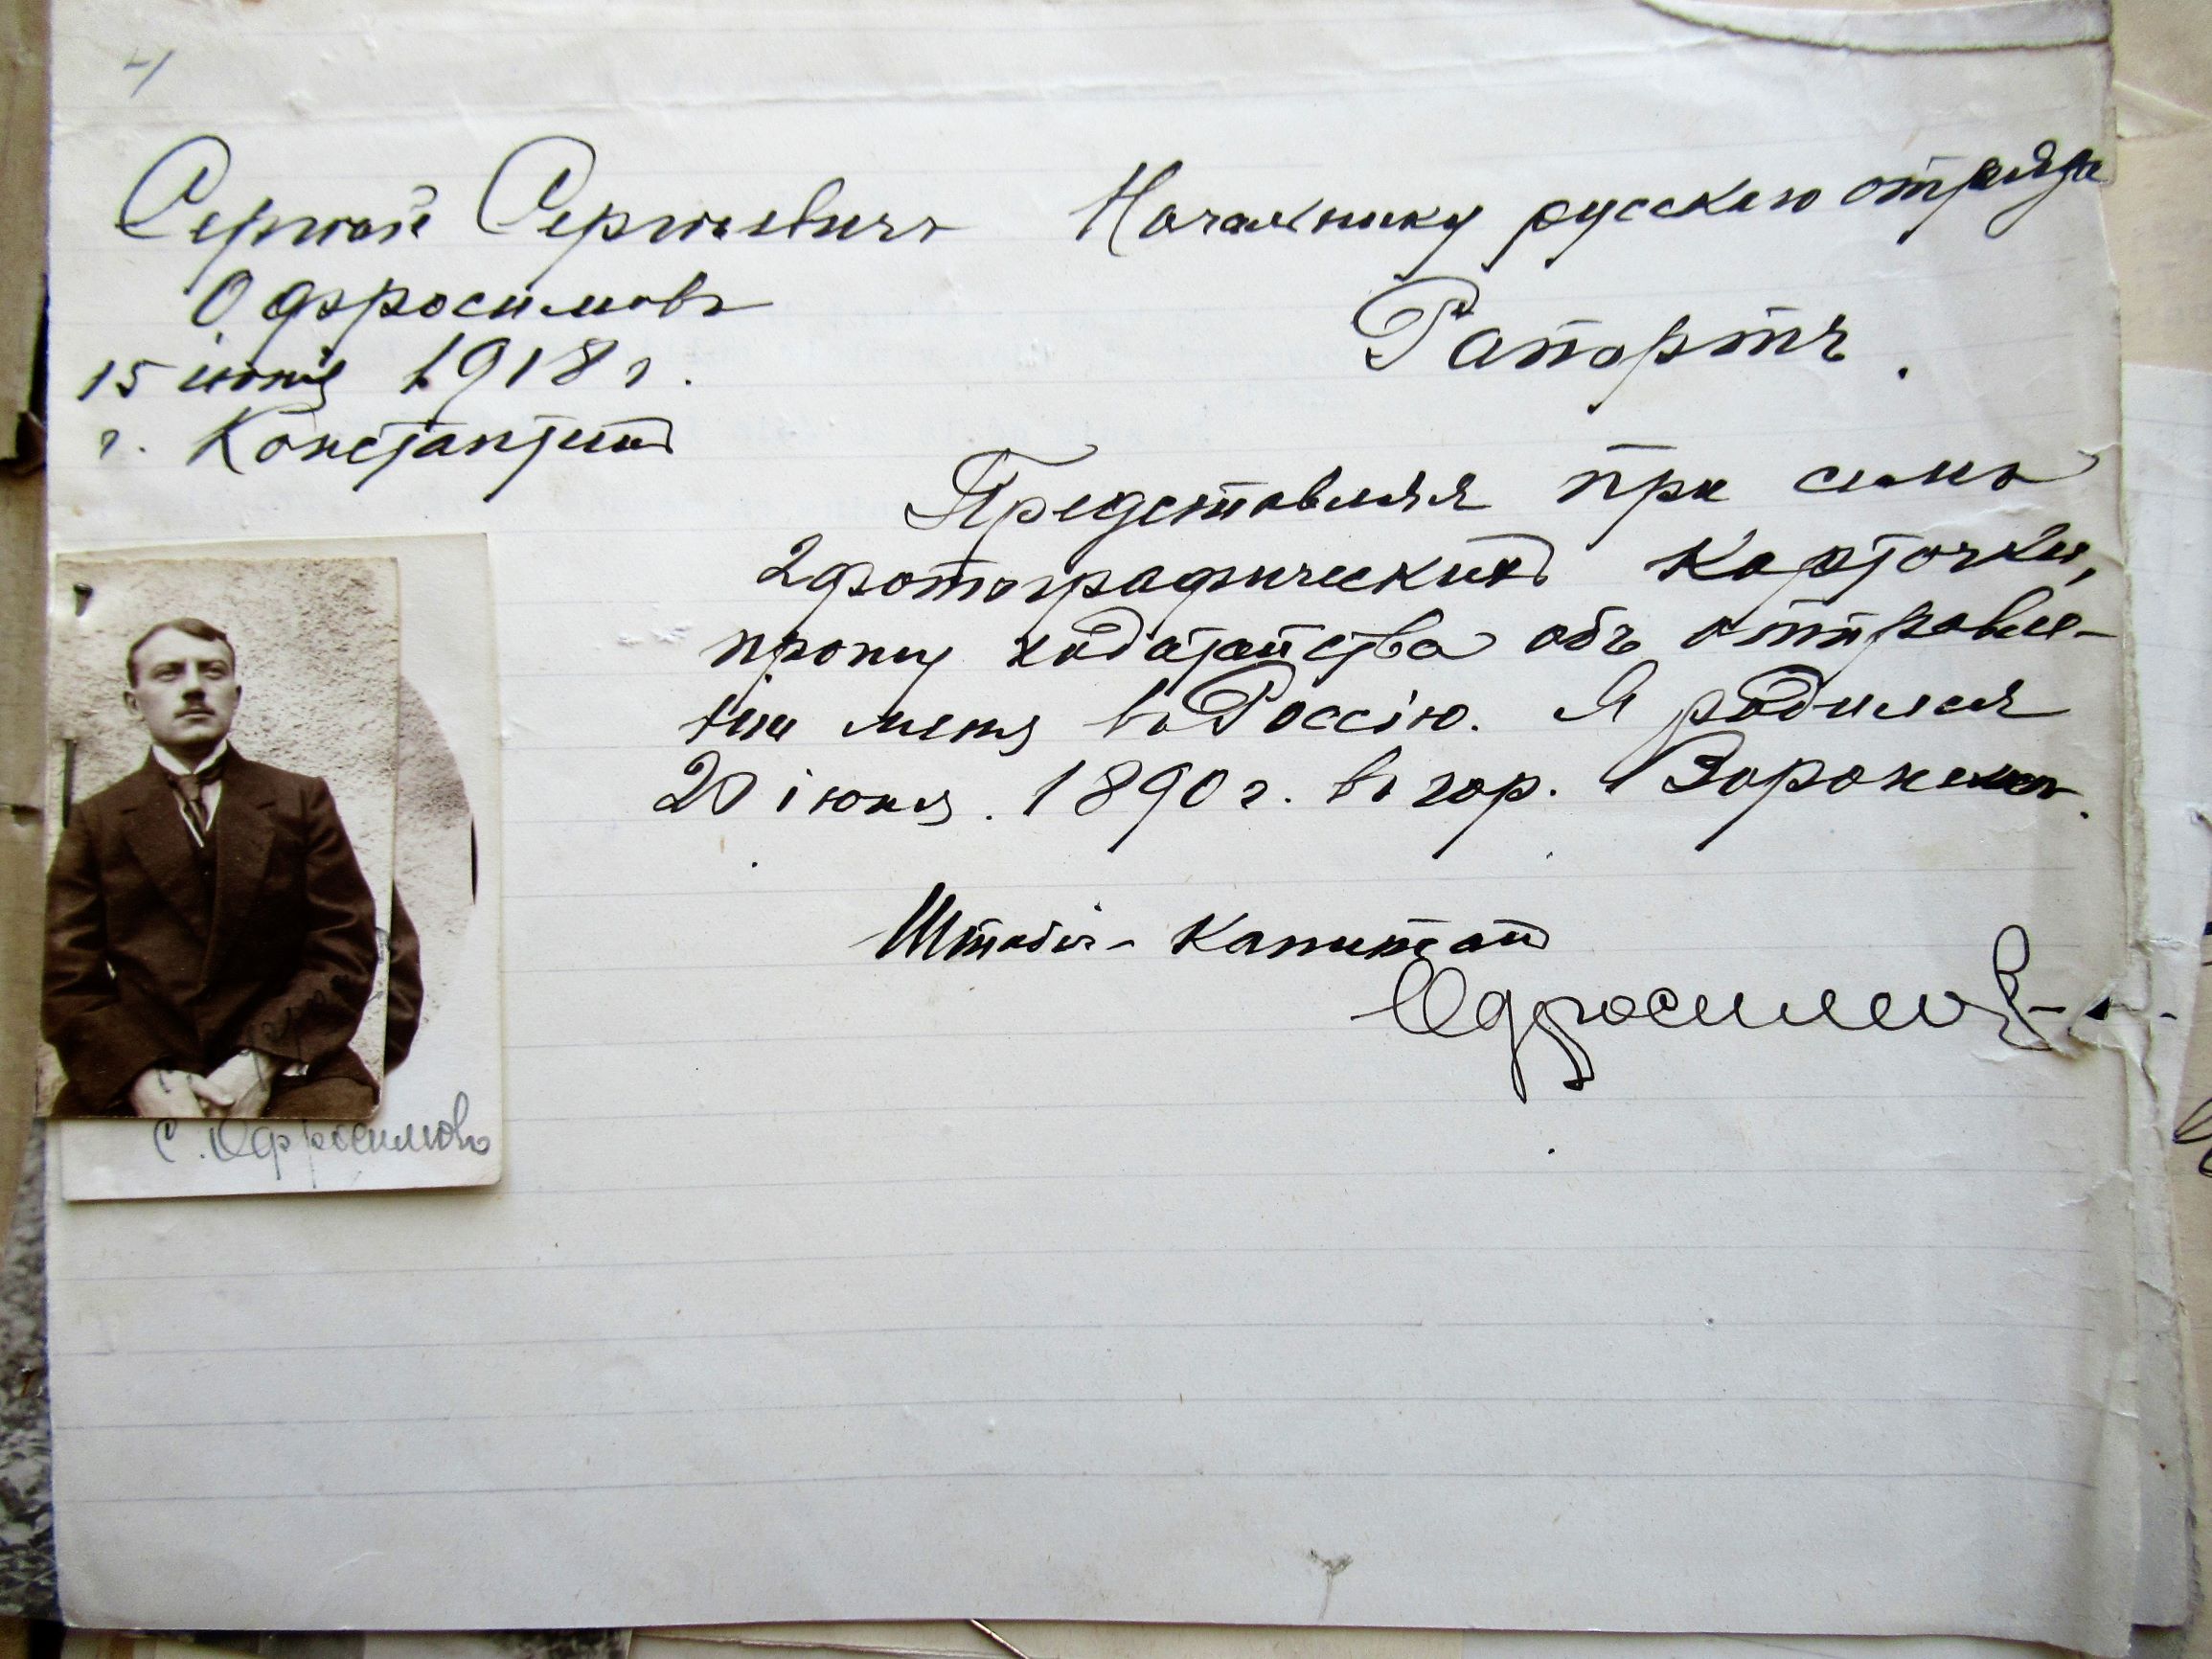 Сергѣй Сергѣевичъ
Офросимовъ
15 іюня 1918 г.
г. Константинъ
Начальнику русскаго отряда
Рапортъ.
Представляя при семъ
2 фотографическія карточки,
прошу ходатайства объ отправле-
ніи меня въ Россію. Я родился
20 іюня. 1890 г. въ гор. Воронежѣ.
Штабсъ-Капитанъ
Офросимовъ
С. Офросимовъ